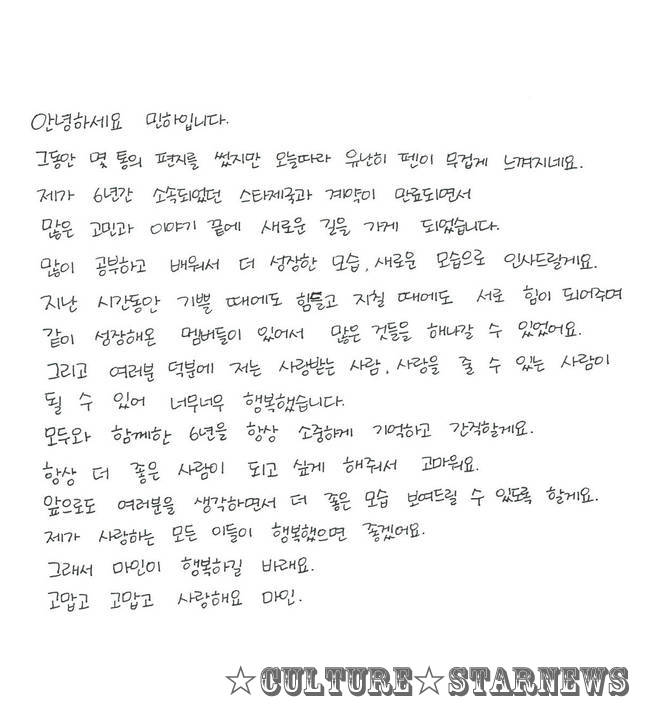 안녕하세요 민하입니다.
그동안 몇 통의 편지를 썼지만 오늘따라 유난히 펜이 무겁게 느껴지네요.
제가 6년간 소속되었던 스타제국과 계약이 만료되면서
많은 고민과 이야기 끝에 새로운 길을 가게 되었습니다.
많이 공부하고 배워서 더 성장한 모습, 새로운 모습으로 인사드릴게요.
지난 시간동안 기쁠 때에도 힘들고 지칠 때에도 서로 힘이 되어주며
같이 성장해온 멤버들이 있어서 많은 것들을 해나갈 수 있었어요.
그리고 여러분 덕분에 저는 사랑받는 사람, 사랑을 줄 수 있는 사람이
될 수 있어 너무너무 행복했습니다.
모두와 함께한 6년을 항상 소중하게 기억하고 간직할게요.
항상 더 좋은 사람이 되고 싶게 해줘서 고마워요.
앞으로도 여러분을 생각하면서 더 좋은 모습 보여드릴 수 있도록 할게요.
제가 사랑하는 모든 이들이 행복했으면 좋겠어요.
그래서 마인이 행복하길 바래요.
고맙고 고맙고 사랑해요 마인.
☆CULTURE☆STARNEWS